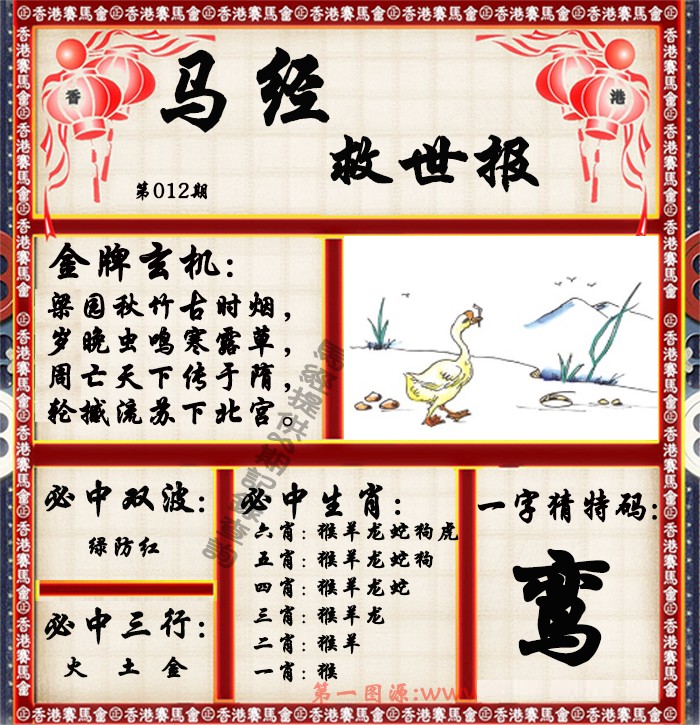 香港賽馬會㊣香港賽馬會㊣香港賽馬會㊣香港賽馬會㊣香港賽馬會㊣香港賽馬會
香
港
马经
救世报
第012期
金牌玄机:
梁园秋竹古时烟,
岁晚虫鸣寒露草,
周亡天下传于隋,
轮撼流苏下北宫。
必中双波:
绿防红
必中三行:
火 土 金
必中生肖:
六肖:猴羊龙蛇狗虎
五肖:猴羊龙蛇狗
四肖:猴羊龙蛇
三肖:猴羊龙
二肖:猴羊
一肖:猴
一字猜特码:
鸾
第一图源:www